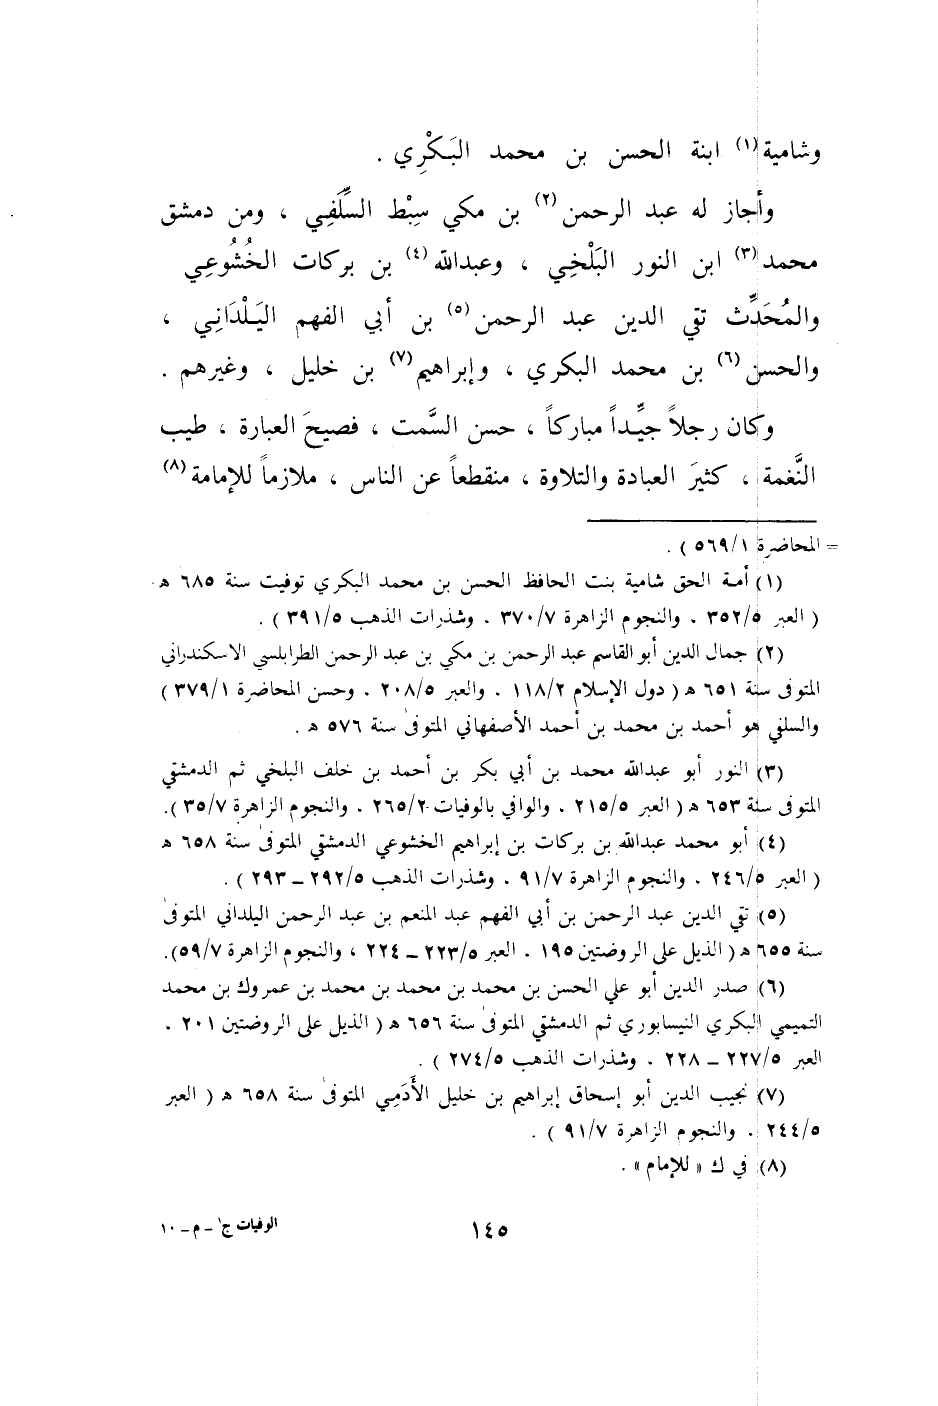 وشامية (١) ابنة الحسن بن محمد البَكْرِي .
وأجاز له عبد الرحمن (٢) بن مكي سِبْط السِّلَفِي ، ومن دمشق
محمد (٣) ابن النور البَلْخِي ، وعبدالله (٤) بن بركات الخُشُوعِي
والمُحَدِّث تقي الدين عبد الرحمن (٥) بن أبي الفهم اليَلْدَانِي ،
والحسن (٦) بن محمد البكري ، وإبراهيم (٧) بن خليل ، وغيرهم .
وكان رجلاً جيِّداً مباركاً ، حسن السَّمت ، فصيحَ العبارة ، طيب
النَّغمة ، كثيرَ العبادة والتلاوة ، منقطعاً عن الناس ، ملازماً للإمامة (٨)
= المحاضرة ٥٦٩/١ ) .
(١) أمة الحق شامية بنت الحافظ الحسن بن محمد البكري توفيت سنة ٦٨٥ هـ
( العبر ٣٥٢/٥ . والنجوم الزاهرة ٣٧٠/٧ . وشذرات الذهب ٣٩١/٥ ) .
(٢) جمال الدين أبو القاسم عبد الرحمن بن مكي بن عبد الرحمن الطرابلسي الاسكندراني
المتوفى سنة ٦٥١ هـ ( دول الإسلام ١١٨/٢ . والعبر ٢٠٨/٥ . وحسن المحاضرة ٣٧٩/١ )
والسلفي هو أحمد بن محمد بن أحمد الأصفهاني المتوفى سنة ٥٧٦ هـ .
(٣) النور أبو عبدالله محمد بن أبي بكر بن أحمد بن خلف البلخي ثم الدمشقي
المتوفى سنة ٦٥٣ هـ ( العبر ٢١٥/٥ . والوافي بالوفيات ٢٦٥/٢ . والنجوم الزاهرة ٣٥/٧ ).
(٤) أبو محمد عبدالله بن بركات بن إبراهيم الخشوعي الدمشقي المتوفى سنة ٦٥٨ هـ
( العبر ٢٤٦/٥ . والنجوم الزاهرة ٩١/٧ . وشذرات الذهب ٢٩٢/٥ – ٢٩٣ ) .
(٥) تقي الدين عبد الرحمن بن أبي الفهم عبد المنعم بن عبد الرحمن اليلداني المتوفى
سنة ٦٥٥ هـ ( الذيل على الروضتين ١٩٥ . العبر ٢٢٣/٥ – ٢٢٤ ، والنجوم الزاهرة ٥٩/٧).
(٦) صدر الدين أبو علي الحسن بن محمد بن محمد بن محمد بن عمروك بن محمد
التميمي البكري النيسابوري ثم الدمشقي المتوفى سنة ٦٥٦ هـ ( الذيل على الروضتين ٢٠١ .
العبر ٢٢٧/٥ – ٢٢٨ . وشذرات الذهب ٢٧٤/٥ ) .
(٧) نجيب الدين أبو إسحاق إبراهيم بن خليل الأَدَمِي المتوفى سنة ٦٥٨ هـ ( العبر
٢٤٤/٥ . والنجوم الزاهرة ٩١/٧ ) .
(٨) في ك « للإمام » .
١٤٥
الوفيات ج١ – م – ١٠